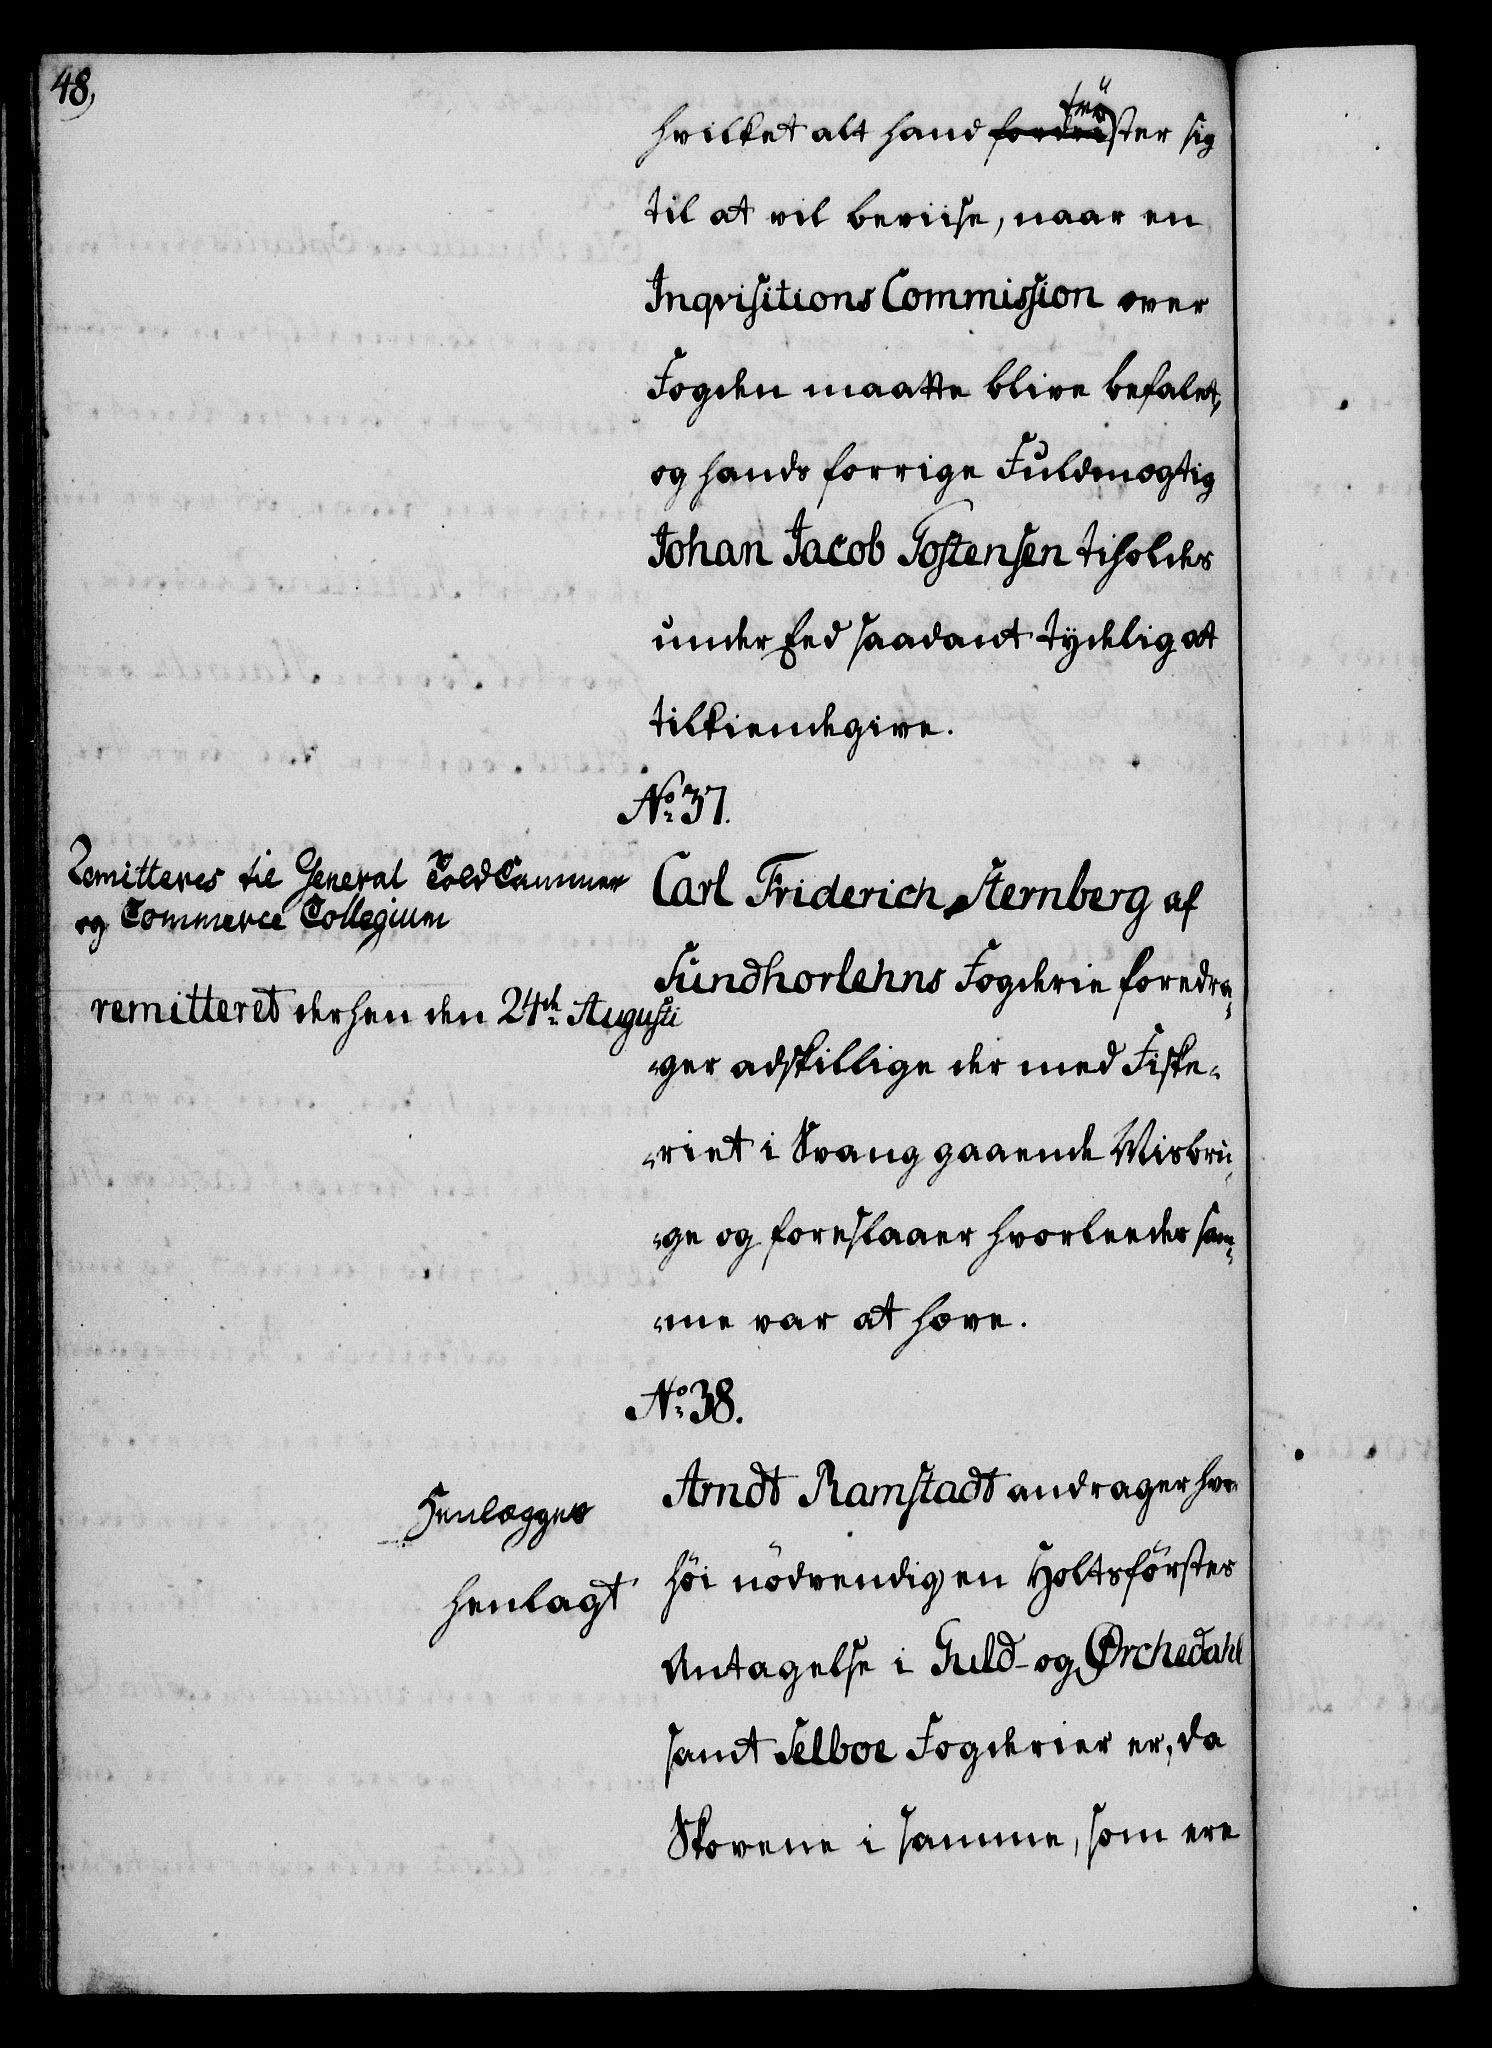 48,
hvilket alt hand fordri trö ster sig
til at vil beviise, naar en
Inqvisitions Commission over
Fogden maatte blive befalet,
og hands forrige Fuldmægtig
Johan Jacob Tostensen tilholdes
under Eed saadant tydeligst
tilkiendegive.
No 37.
Remitteres til General Told Cammer
og Commerce Collegium
remitteret derhen den 24de Augusti
Carl Friderich Sternberg af
Sundhorlehns Fogderie foredra-
-ger adskillige der med Fiske-
-riet i Svang gaaende Misbru-
-ge og foreslaaer hvorleedes sam-
-me var at hæve.
No 38.
Henlægges
henlagt
Arndt Ramstadt andrager hvor
höi nödvendig en Holtsförsters
Antagelse i Guld- og Ørchedahl
samt Selboe Fogderier er, da
Skovene i samme, som ere